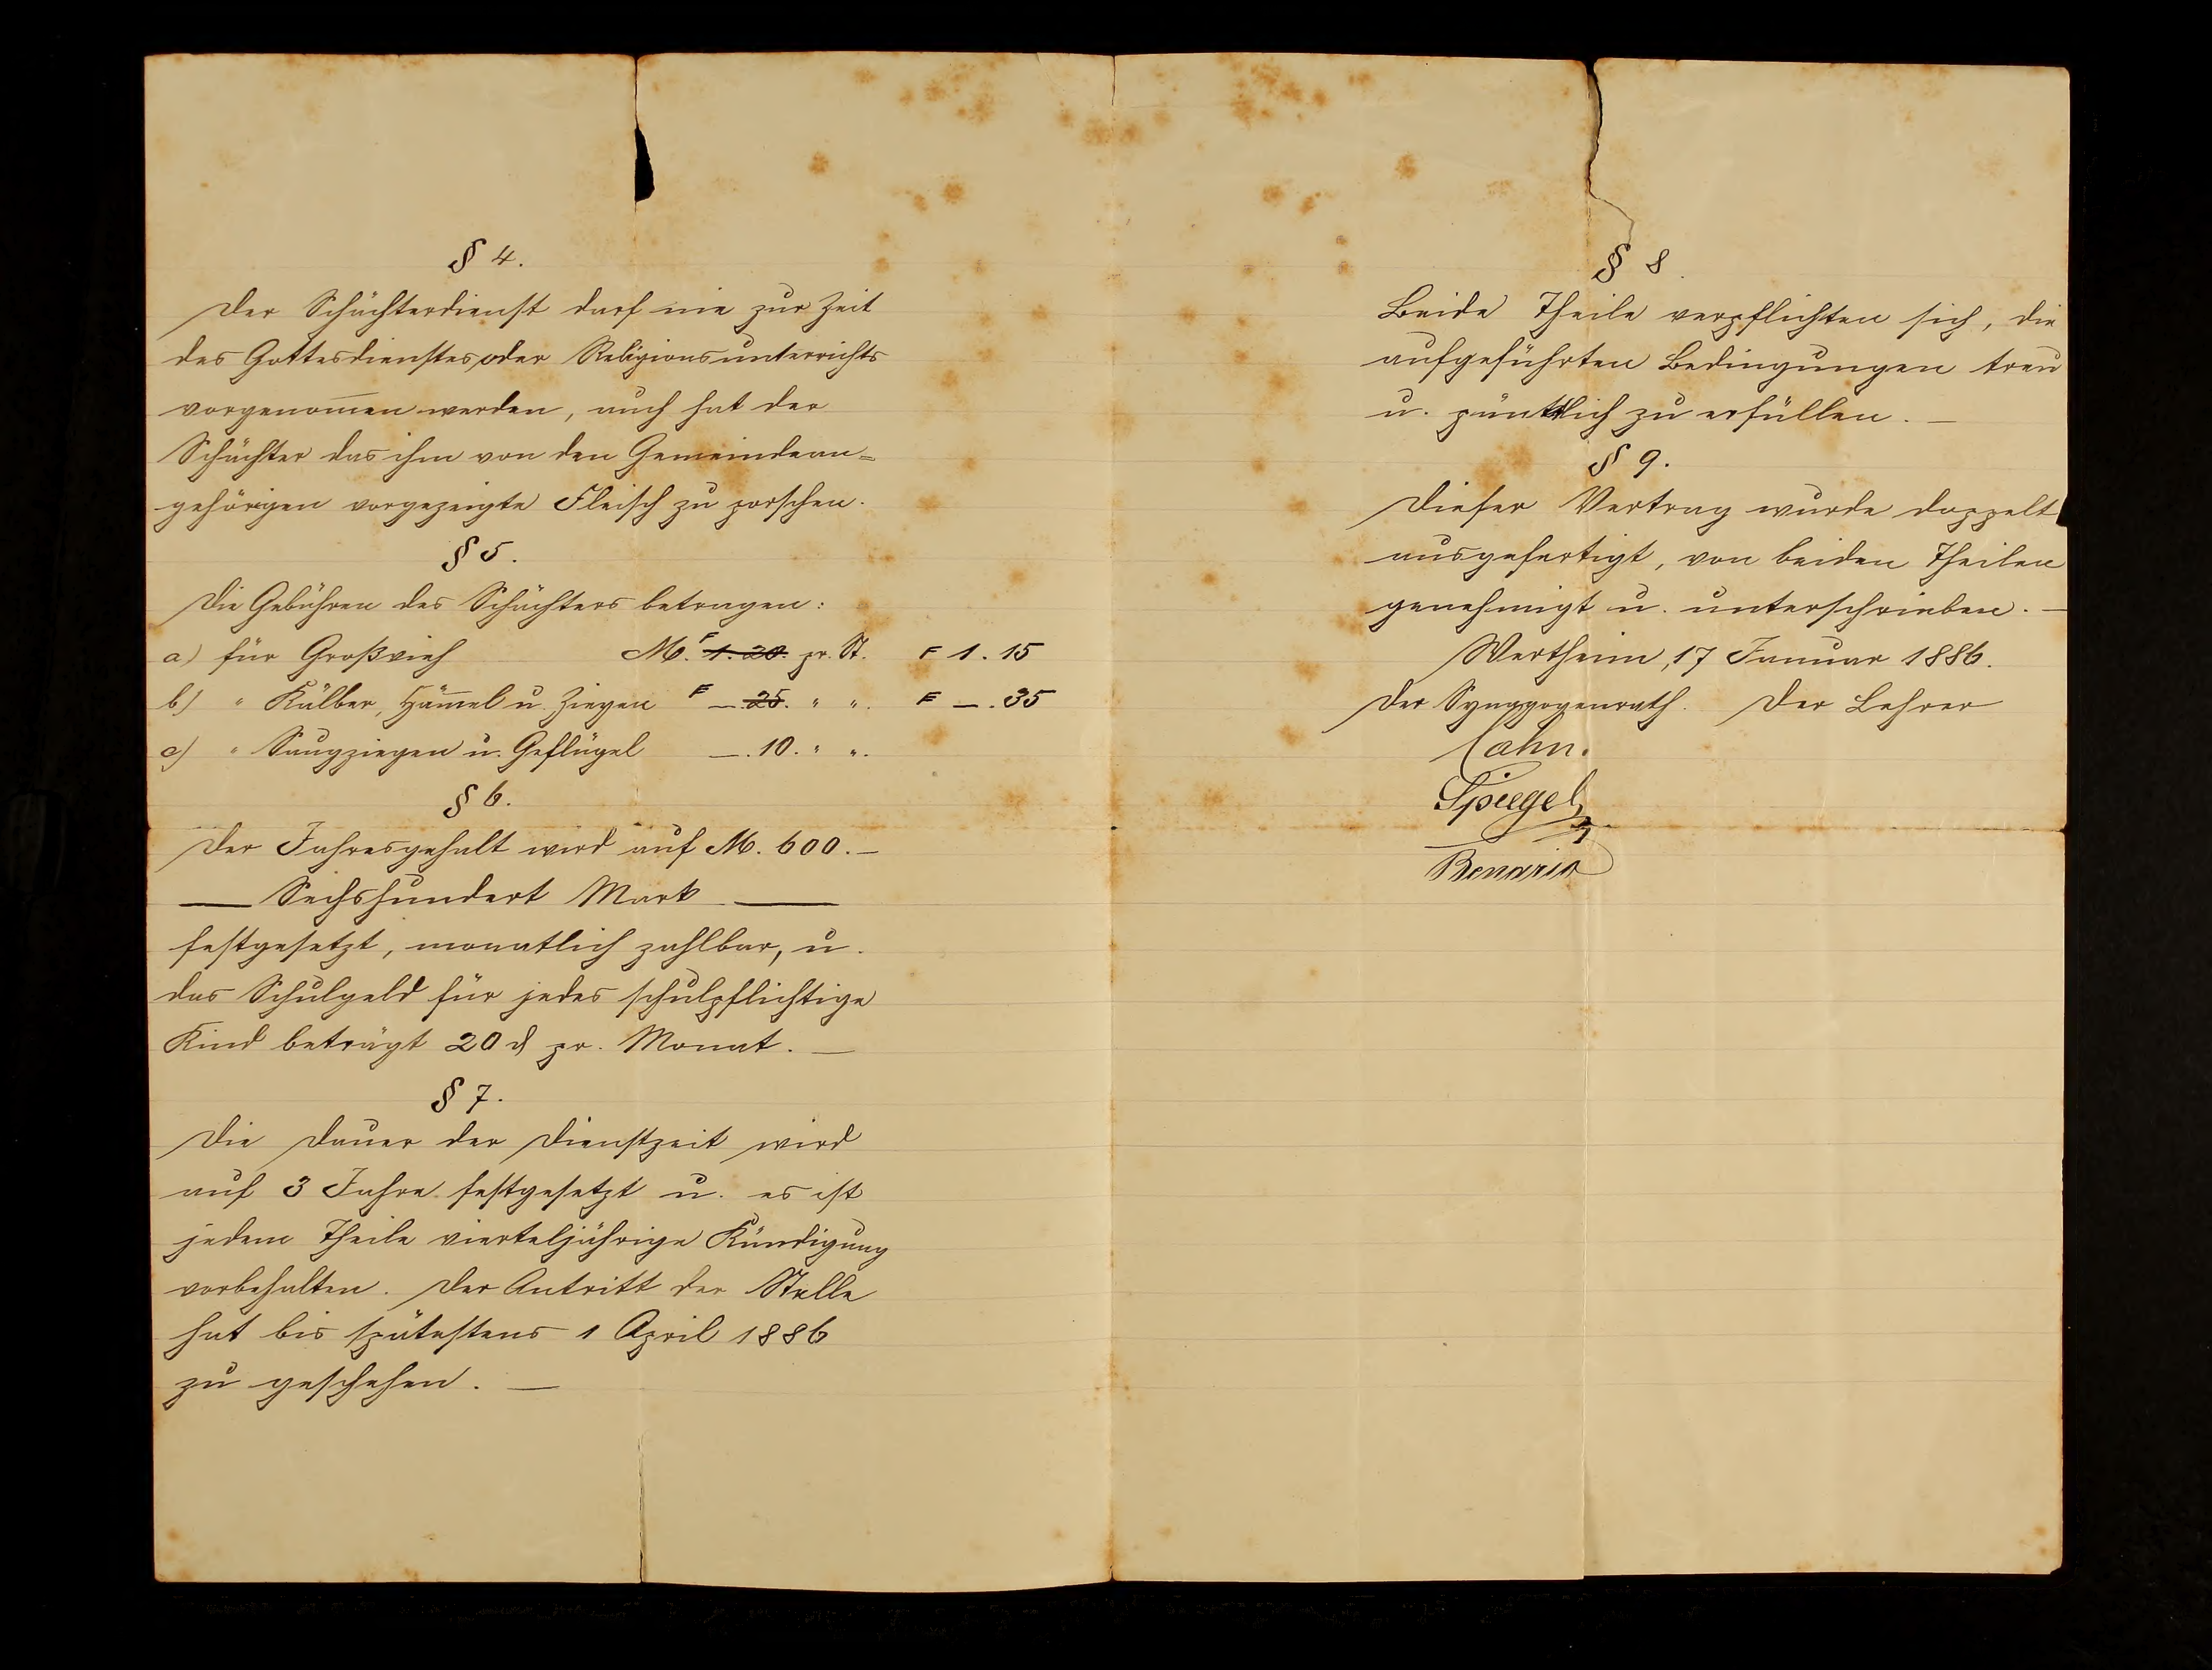 § 4.
Der Schächterdienst darf nie zur Zeit
des Gottesdienstes oder Religionsunterrichts
vorgenom̅en werden, auch hat der
Schächter das ihm von den Gemeindean=
gehörigen vorgezeigte Fleisch zu porschen.
§ 5.
Die Gebühren des Schächters betragen:
a) für Großvieh M. F 1.20. pr. St. F 1.15
b) " Kälber, Häm̅el u. Ziegen F —.25. " ". F —.35
c) " Saugziegen u. Geflügel —.10. " ".
§ 6.
Der Jahresgehalt wird auf M. 600.—
— Sechshundert Mark —
festgesetzt, monatlich zahlbar, u.
das Schulgeld für jedes schulpflichtige
Kind beträgt 20 ₰ pr. Monat. —
§ 7.
Die Dauer der Dienstzeit wird
auf 3 Jahre festgesetzt u. es ist
jedem Theile vierteljährige Kündigung
vorbehalten. Der Antritt der Stelle
hat bis spätestens 1 April 1886
zu geschehen. —
§ 8.
Beide Theile verpflichten sich, die
aufgeführten Bedingungen treu
u. pünktlich zu erfüllen. —
§ 9.
Dieser Vertrag wurde doppelt
ausgefertigt, von beiden Theilen
genehmigt u. unterschrieben. —
Wertheim, 17 Januar 1886.
Der Synagogenrath. Der Lehrer
Cahn.
Spiegel
Benario